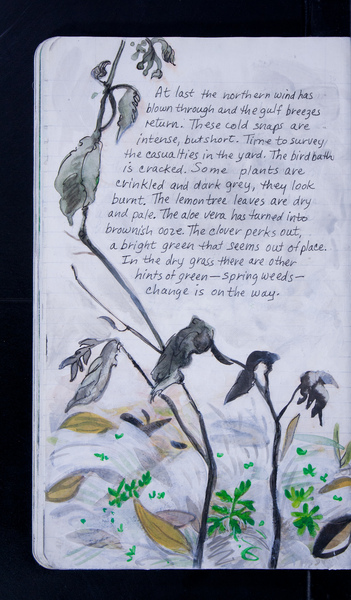 At last the northern wind has
blown through and the gulf breezes
return. These cold snaps are
intense, but short. Time to survey
the casualties in the yard. The bird bath
is cracked. Some plants are
crinkled and dark grey, they look
burnt. The lemontree leaves are dry
and pale. The aloe vera has turned into
brownish ooze. The clover perks out,
a bright green that seems out of place.
In the dry grass there are other
hints of green—spring weeds—
change is on the way.